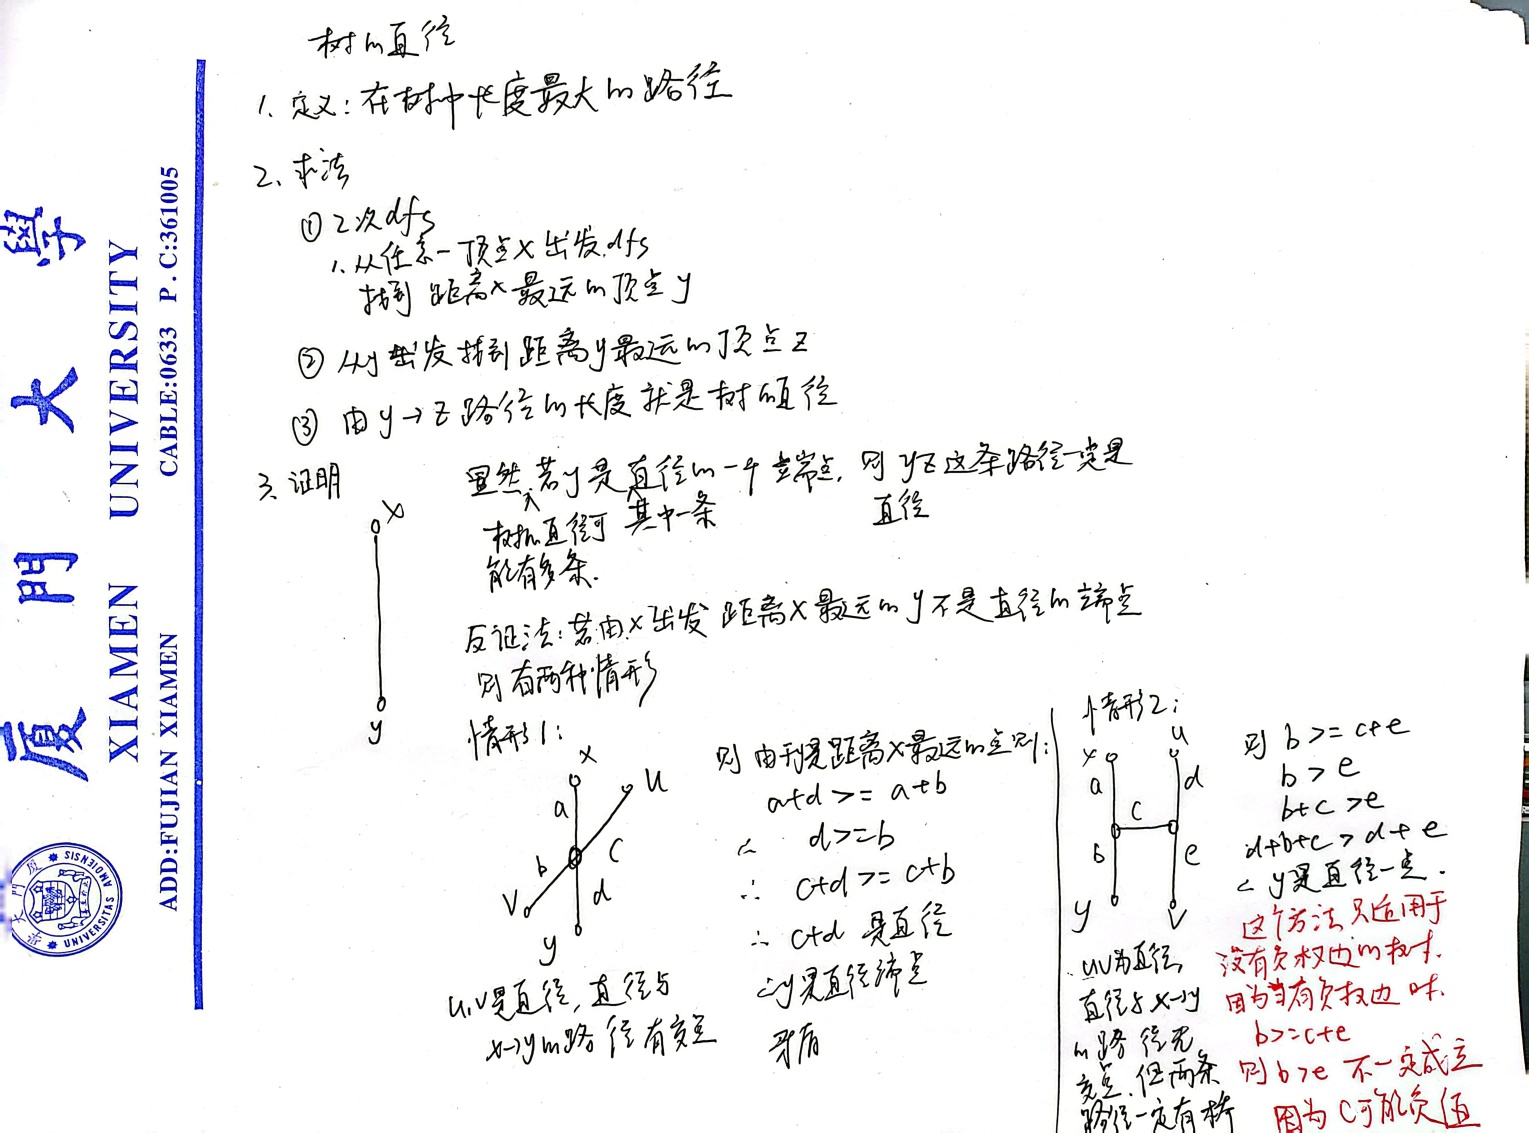 树的直径
1. 定义: 在树中长度最大的路径
2. 求法
① 2次dfs
1. 从任意一顶点x出发.dfs
找到 距离x最远的顶点 y
② 从y出发找到距离y最远的顶点z
③ 由y→z路径的长度就是树的直径
3. 证明
显然 若y是直径的一个端点, 则 yz这条路径一定是
直径
树的直径可
能有多条.
其中一条
x
y
反证法: 若由x出发 距离x最远的y不是直径的端点
则有两种情形
情形1:
x
u
a
b
c
v
d
y
u,v是直径, 直径与
x→y的路径有交点
则 由于y是距离x最远的点则:
a+d >= a+b
∴ d>=b
∴ c+d >= c+b
∴ c+d 是直径
∴y是直径端点
矛盾
情形2:
x
u
a
d
c
b
e
y
v
uv为直径,
直径与x→y
的路径无
交点. 但两条
路径一定有桥
则 b >= c+e
b > e
b+c > e
d+b+c > d+e
∴ y是直径一点.
这个方法只适用于
没有负权边的树.
因为当有负权边时.
b>=c+e
则 b>e 不一定成立
因为 C可能负值
厦門大學
XIAMEN UNIVERSITY
ADD:FUJIAN XIAMEN CABLE:0633 P.C:361005
厦門大學
UNIVERSITAS AMOIENSIS